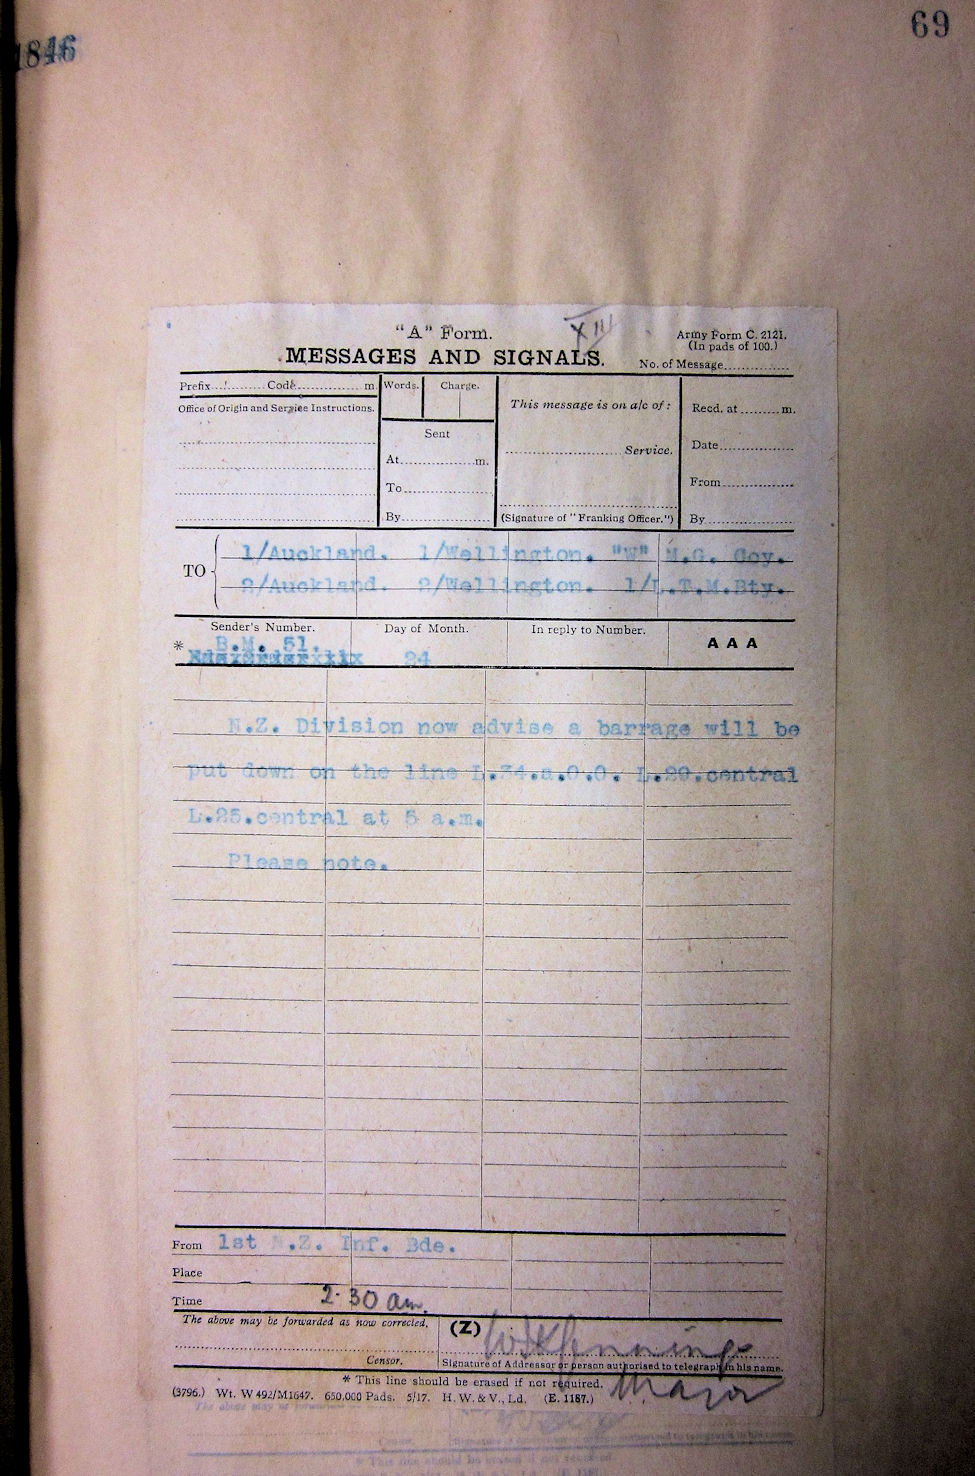 1846
69
"A" Form.
XIII
Army Form C. 2121.
(In pads of 100.)
MESSAGES AND SIGNALS.
No. of Message
Prefix Code m.
Words.
Charge.
This message is on a/c of:
Recd. at m.
Office of Origin and Service Instructions.
Sent
Service.
Date
At m.
To
From
By
(Signature of "Franking Officer.")
By
TO
1/Auckland. 1/Wellington. "W" M.G. Coy.
2/Auckland. 2/Wellington. 1/L.T.M.Bty.
Sender's Number.
Day of Month.
In reply to Number.
AAA
* B.M. 51.
24
N.Z. Division now advise a barrage will be
put down on the line L.34.a.0.0. L.29.central
L.25.central at 5 a.m.
Please note.
From 1st N.Z. Inf. Bde.
Place
Time 2.30 am.
The above may be forwarded as now corrected.
(Z)
Censor.
Signature of Addressor or person authorised to telegraph in his name.
* This line should be erased if not required.
Major
(3796.) Wt. W 492/M1647. 650,000 Pads. 5/17. H. W. & V., Ld. (E. 1187.)
The above may be forwarded
Censor.
* This line should be erased if not required